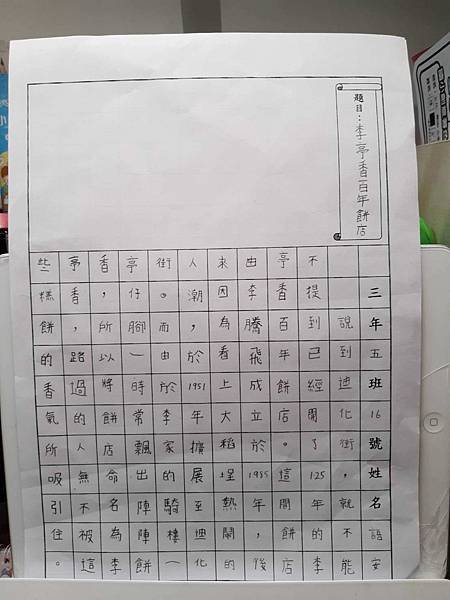 題目：李亭香百年餅店
三年五班16號姓名語安
說到迪化街，就不能
不提到已經開了125年的李
亭香百年餅店。這間餅店
由李騰飛成立於1985年，後
來因為看上大稻埕熱鬧的
人潮，於1951年擴展至迪化
街。而由於李家的騎樓一
亭仔腳一時常飄出陣陣餅
香，所以將餅店命名為李
亭香，路過的人無不被這
些糕餅的香氣所吸引住。